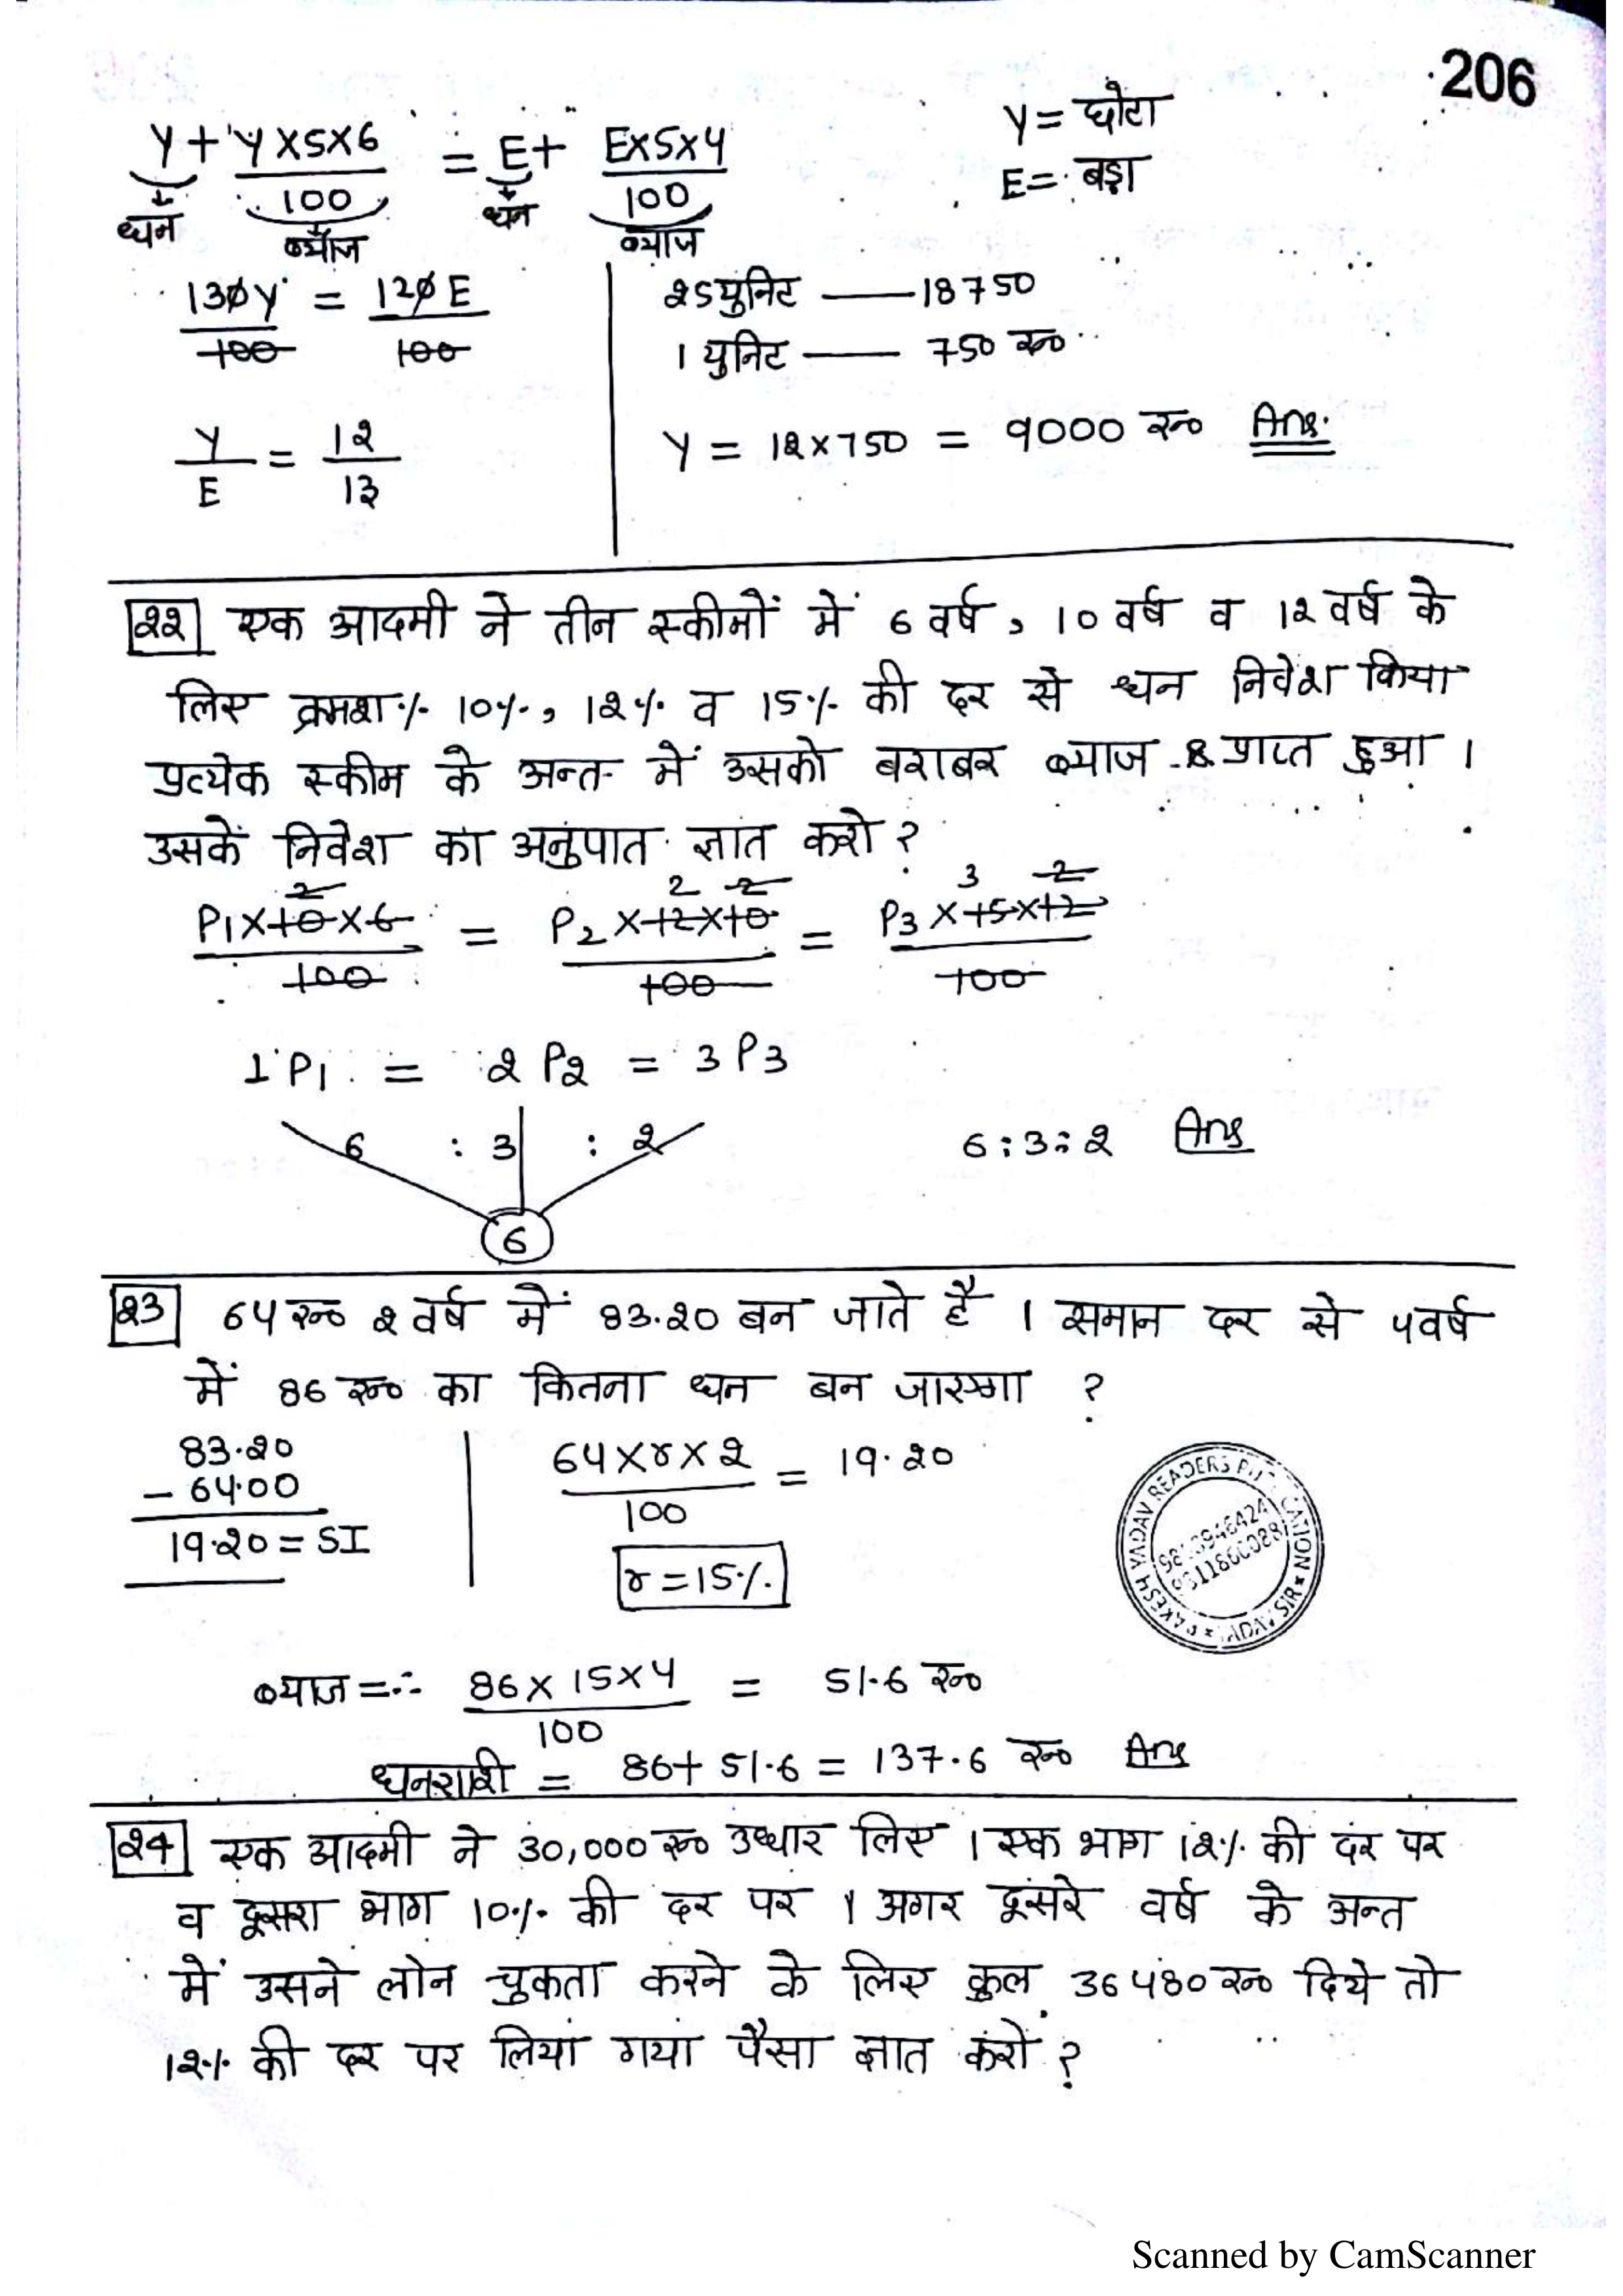 206
Y + Y×5×6/100 = E + E×5×4/100
Y = छोटा
E = बड़ा
धन ब्याज धन ब्याज
130Y/100 = 120E/100
25 युनिट — 18750
1 युनिट — 750 रू०
Y/E = 12/13
Y = 12×750 = 9000 रू० Ans.
22 एक आदमी ने तीन स्कीमों में 6 वर्ष, 10 वर्ष व 12 वर्ष के
लिए क्रमशः 10%, 12% व 15% की दर से धन निवेश किया
प्रत्येक स्कीम के अन्त में उसको बराबर ब्याज प्राप्त हुआ ।
उसके निवेश का अनुपात ज्ञात करो ?
2 2 2 3 2
P1×10×6/100 = P2×12×10/100 = P3×15×12/100
1P1 = 2P2 = 3P3
6 : 3 : 2
6:3:2 Ans
6
23 64 रू० 2 वर्ष में 83.20 बन जाते है । समान दर से 4 वर्ष
में 86 रू० का कितना धन बन जाएगा ?
83.20
- 64.00
19.20 = SI
64×r×2/100 = 19.20
r = 15%
ब्याज =∴ 86×15×4/100 = 51.6 रू०
धनराशी = 86+51.6 = 137.6 रू० Ans
24 एक आदमी ने 30,000 रू० उधार लिए । एक भाग 12% की दर पर
व दूसरा भाग 10% की दर पर । अगर दूसरे वर्ष के अन्त
में उसने लोन चुकता करने के लिए कुल 36480 रू० दिये तो
12% की दर पर लिया गया पैसा ज्ञात करो ?
Scanned by CamScanner